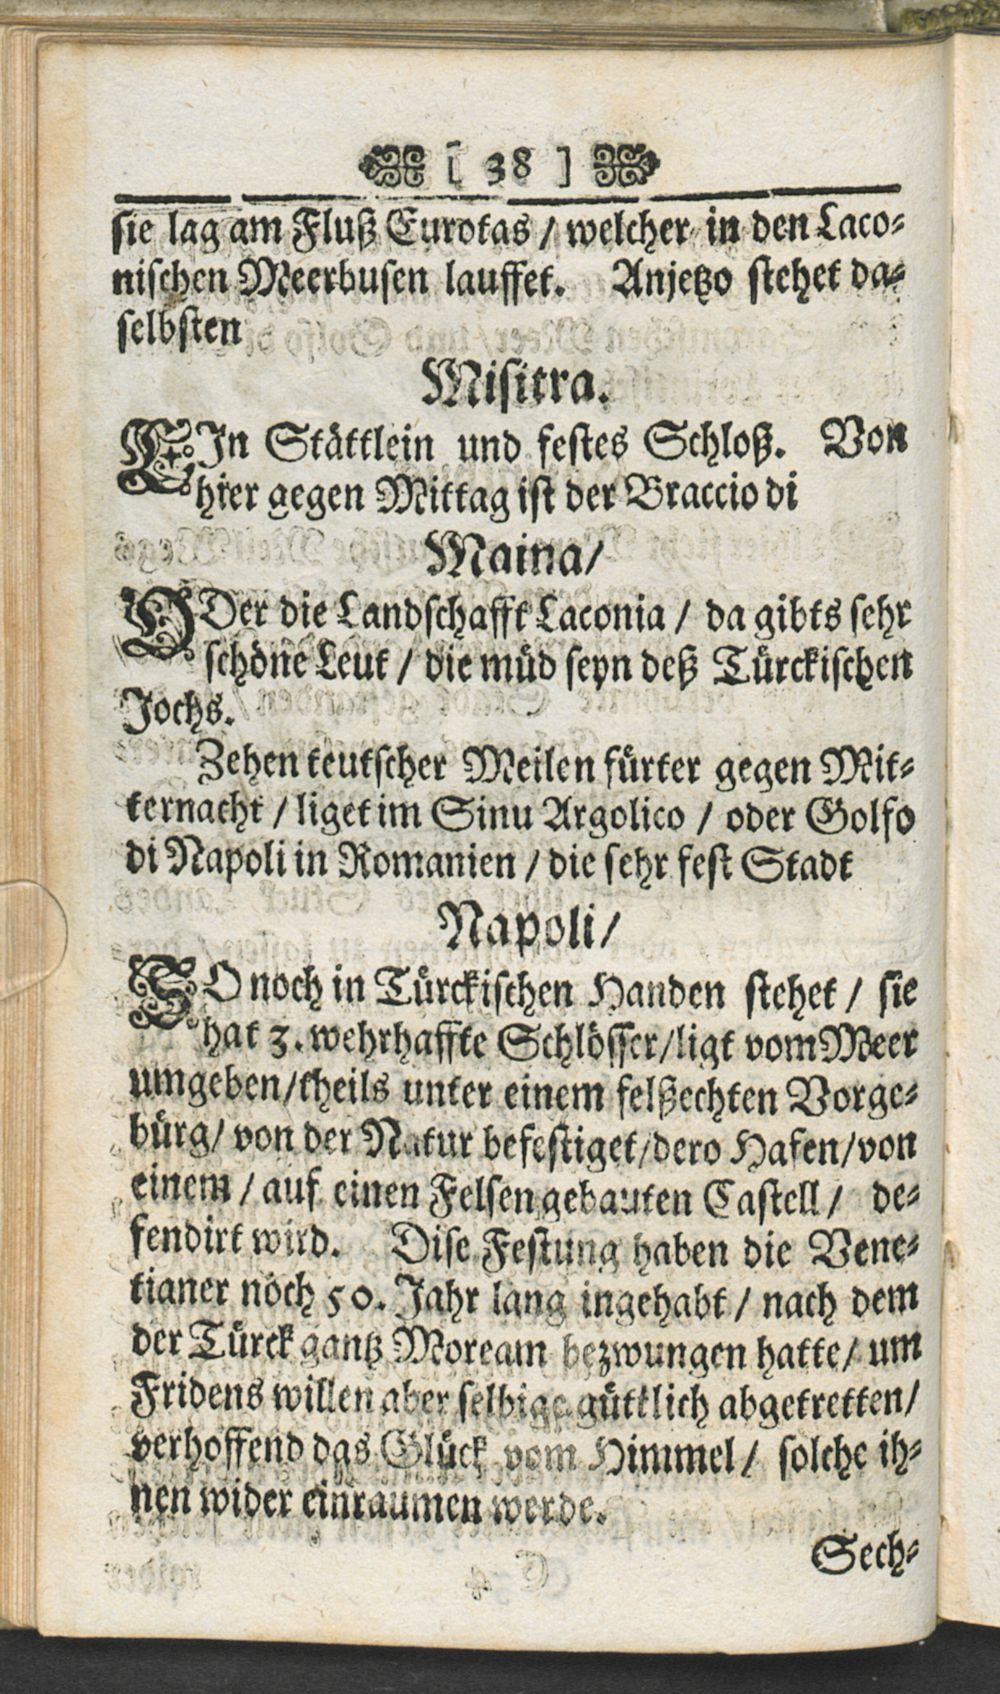 [ 38 ]
sie lag am Fluß Eurotas / welcher in den Laco-
nischen Meerbusen lauffet. Anjetzo stehet da-
selbsten
Misitra.
EIn Stättlein und festes Schloß. Von
hier gegen Mittag ist der Braccio di
Maina/
ODer die Landschafft Laconia / da gibts sehr
schöne Leut / die müd seyn deß Türckischen
Jochs.
Zehen teutscher Meilen fürter gegen Mit-
ternacht / liget im Sinu Argolico / oder Golfo
di Napoli in Romanien / die sehr fest Stadt
Napoli/
SO noch in Türckischen Handen stehet / sie
hat 3. wehrhaffte Schlösser/ligt vom Meer
umgeben/theils unter einem felßechten Vorge-
bürg/ von der Natur befestiget/dero Hafen/von
einem / auf einen Felsen gebauten Castell / de-
fendirt wird. Dise Festung haben die Vene-
tianer noch 50. Jahr lang ingehabt / nach dem
der Türck gantz Moream bezwungen hatte/ um
Fridens willen aber selbige güttlich abgetretten/
verhoffend das Glück vom Himmel / solche ih-
nen wider einraumen werde.
Sech-